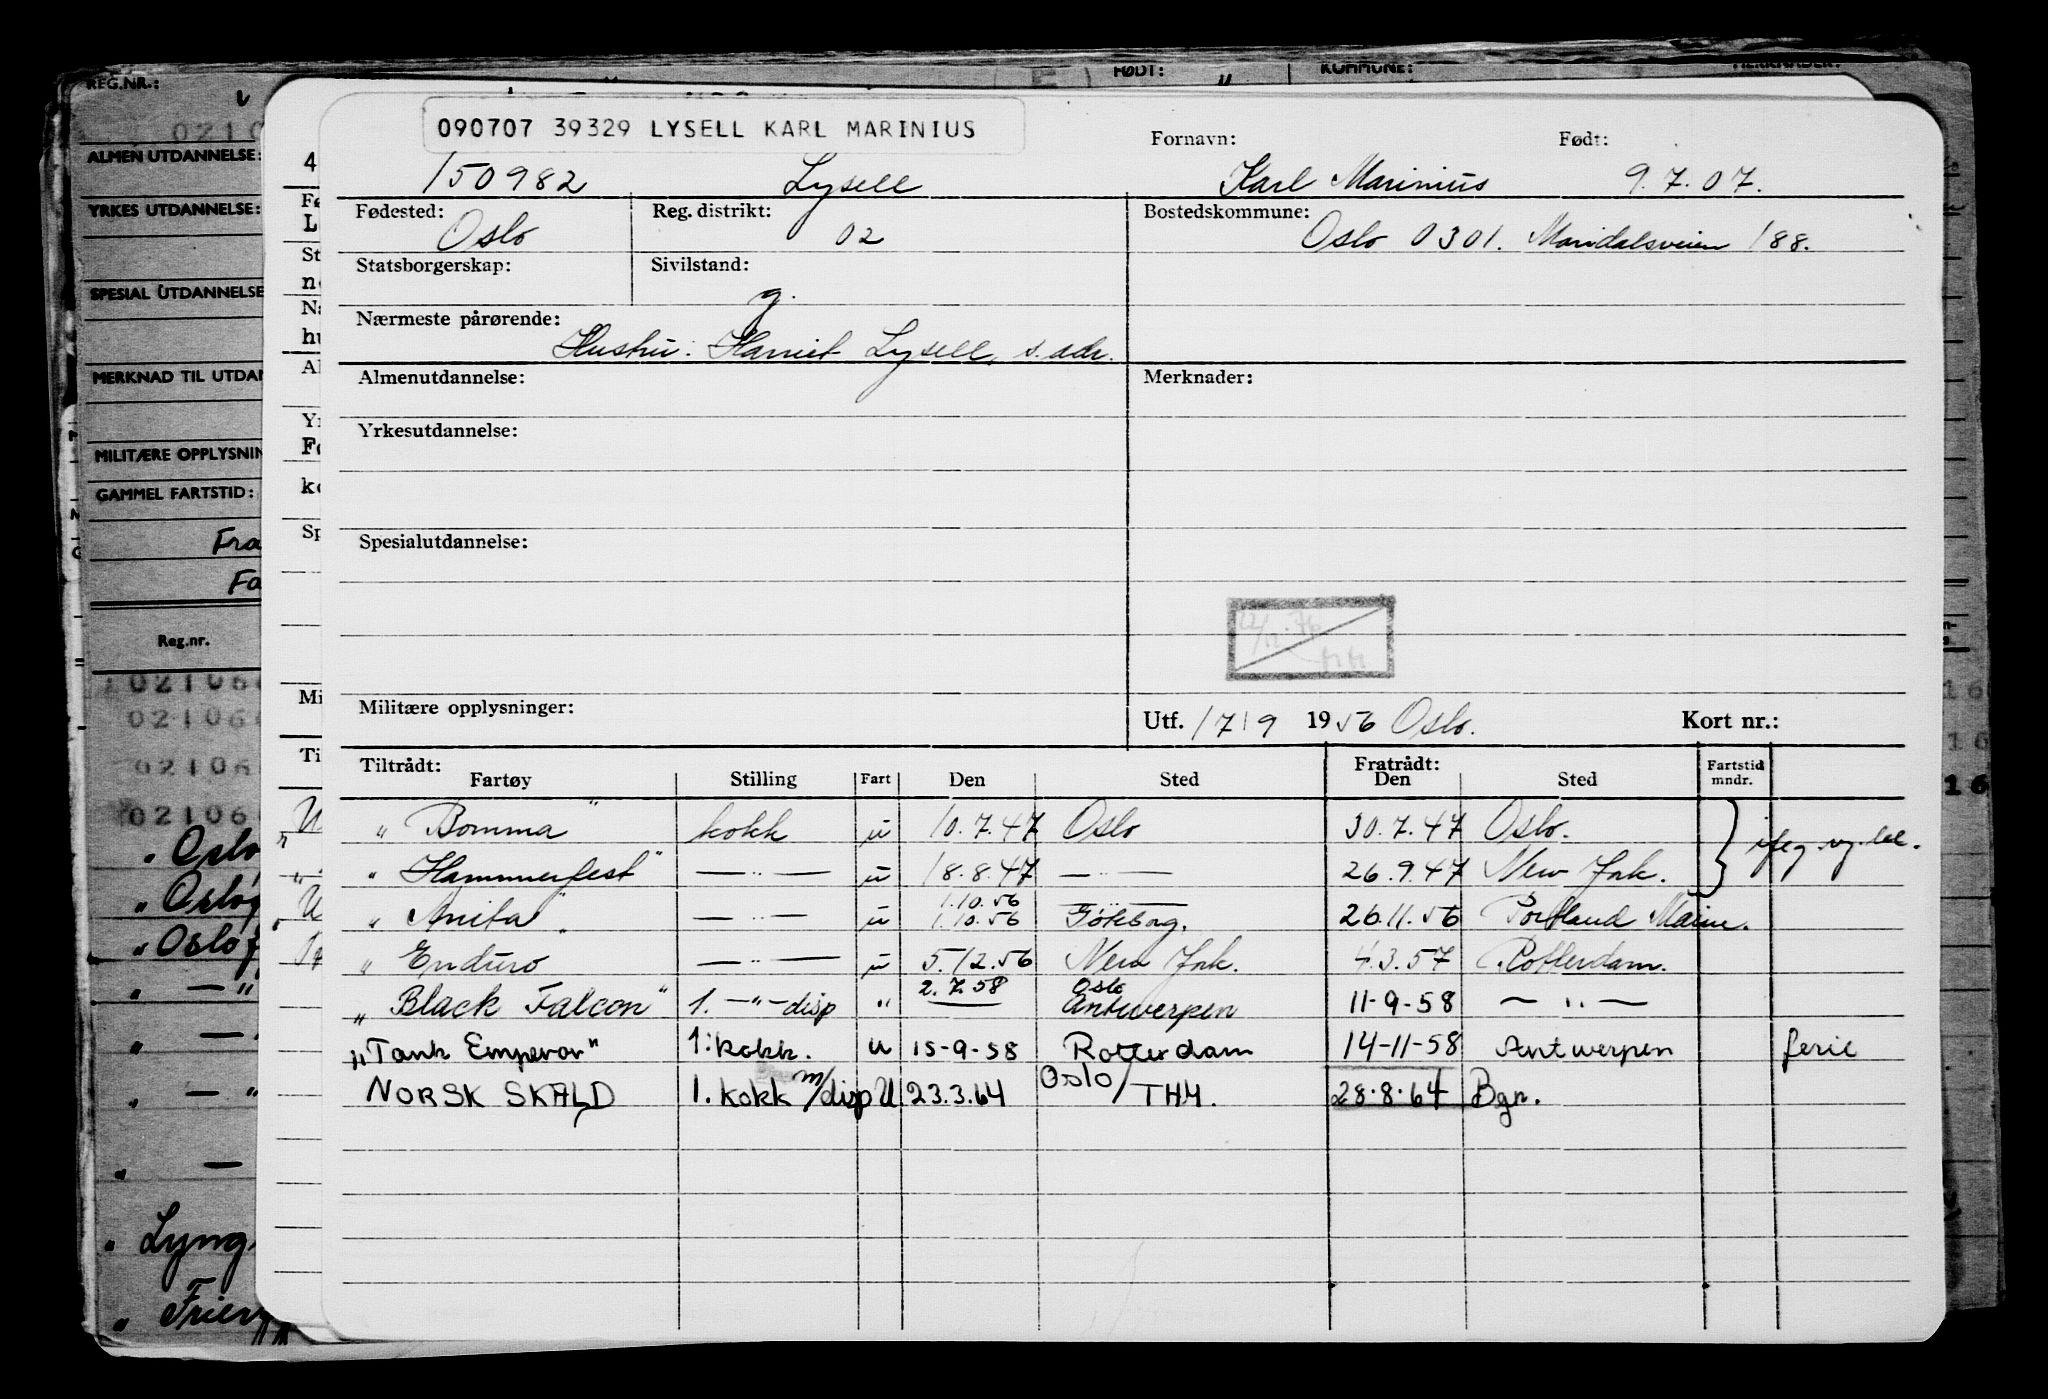 090707 39329 LYSELL KARL MARINIUS
Fornavn: Født:
150982 Lysell Karl Marinius 9.7.07.
Fødested: Reg. distrikt: Bostedskommune:
Oslo 02 Oslo 0301. Maridalsveien 188.
Statsborgerskap: Sivilstand:
g.
Nærmeste pårørende:
Hustru: Harriet Lysell, s. adr.
Almenutdannelse: Merknader:
Yrkesutdannelse:
Spesialutdannelse:
Militære opplysninger: Utf. 17/9 1956 Oslo. Kort nr.:
Tiltrådt: Fratrådt: Fartstid
Fartøy Stilling Fart Den Sted Den Sted mndr.
"Bomma" kokk u 10.7.47 Oslo 30.7.47 Oslo.
"Hammerfest" — " — u 18.8.47 — " — 26.9.47 New York.
1.10.56
"Anita" — " — u 1.10.56 Göteborg. 26.11.56 Portland Maine.
"Enduro — " — u 5.12.56 New York. 4.3.57 Rotterdam.
2.7.58 Oslo
"Black Falcon" 1. — " — disp " Antwerpen 11-9-58 — " —
"Tank Emperor" 1. kokk. u 15-9-58 Rotterdam 14-11-58 Antwerpen ferie
NORSK SKALD 1. kokk m/disp U 23.3.64 Oslo/TH4. 28.8.64 Bgn.
REG.NR.:
FØDT:
KOMMUNE:
ALMEN UTDANNELSE:
YRKES UTDANNELSE:
SPESIAL UTDANNELSE
MERKNAD TIL UTDAN
MILITÆRE OPPLYSNIN
GAMMEL FARTSTID:
Fra
Reg.nr.
02106
02106
02106
02106
"Oslo
"Oslof
"Oslof
"Lyng
"Frier